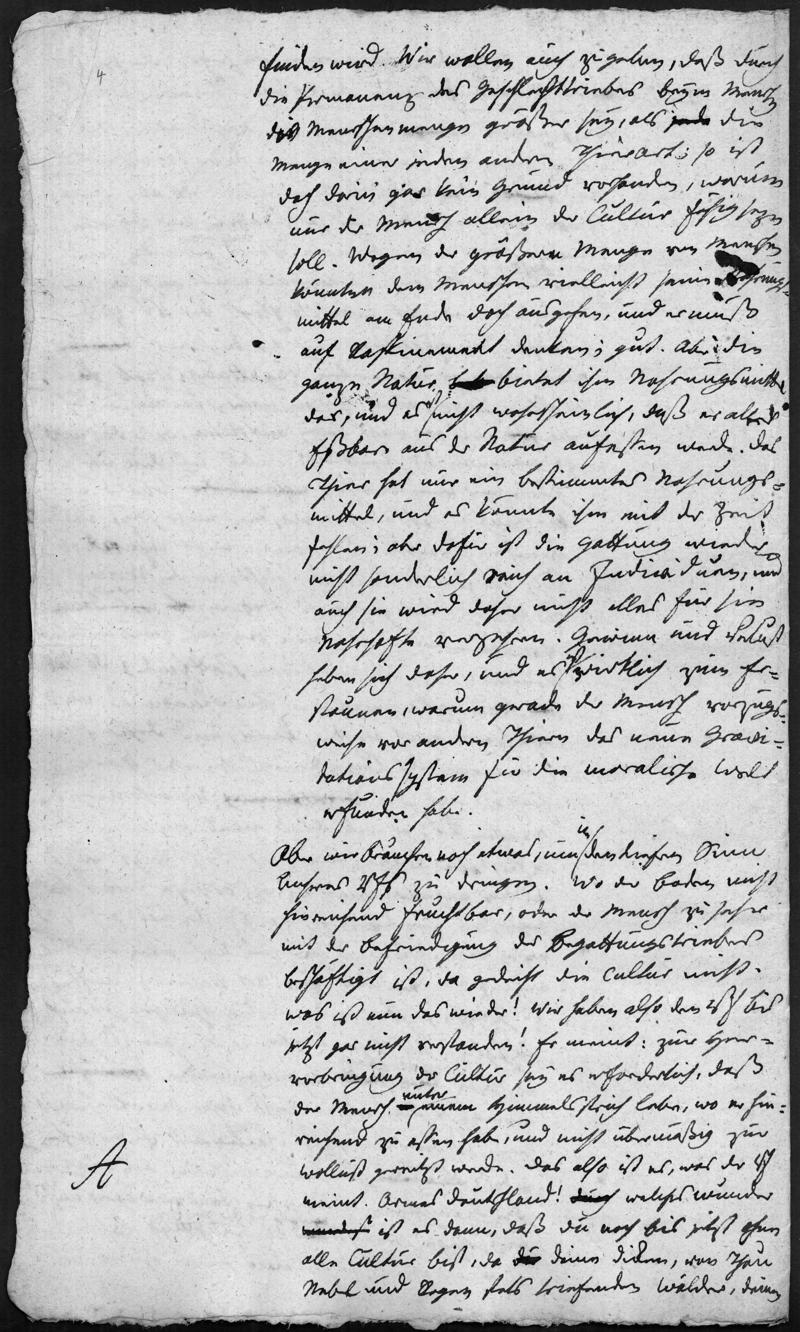 4
finden wird. Wir wollen auch zugeben, daß durch
die Permanenz des Geschlechttriebes beym Mensch
die Menschenmenge größer sey, als jede die
Menge einer jeden andern Thierart; so ist
doch darin gar kein Grund vorhanden, warum
nur der Mensch allein der Cultur fähig seyn
soll. Wegen der größern Menge von Menschen
könnten dem Menschen vielleicht seine Nahrungs-
mittel am Ende doch ausgehen, und er muß
auf Raffinement denken; gut. Aber die
ganze Natur bietet ihm Nahrungsmittel
dar, und es nicht wahrscheinlich, daß er alles
Eßbare aus der Natur aufessen werde. Das
Thier hat nur ein bestimmtes Nahrungs-
mittel, und es könnte ihm mit der Zeit
fehlen; aber dafür ist die Gattung wieder
nicht sonderlich reich an Individuen, und
auch sie wird daher nicht alles für sie
Nahrhafte verzehren. Gewinn und Verlust
heben sich daher, und es ist wirklich zum Er-
staunen, warum gerade der Mensch vorzugs-
weise vor andern Thieren das neue Gravi-
tationssystem für die moralische Welt
erfunden habe.
Aber wir brauchen noch etwas, um in den tiefern Sinn
unseres Vfs zu dringen. Wo der Boden nicht
hinreichend fruchtbar, oder der Mensch zu sehr
mit der Befriedigung des Begattungstriebes
beschäftigt ist, da gedeiht die Cultur nicht.
was ist nun das wieder! Wir haben also den Vf bis
jetzt gar nicht verstanden! Er meint: zur Her-
vorbringung der Cultur sey es erforderlich, daß
der Mensch unter einem Himmelsstrich lebe, wo er hin-
reichend zu essen habe, und nicht übermäßig zur
Wollust gereitzt werde. Das also ist es, was der Vf
A
meint. Armes Deutschland! durch welches Wunder
ist es denn, daß du noch bis jetzt ohne
alle Cultur bist, da die deine dicken, von Thau
Nebel und Regen stets triefenden Wälder, deine